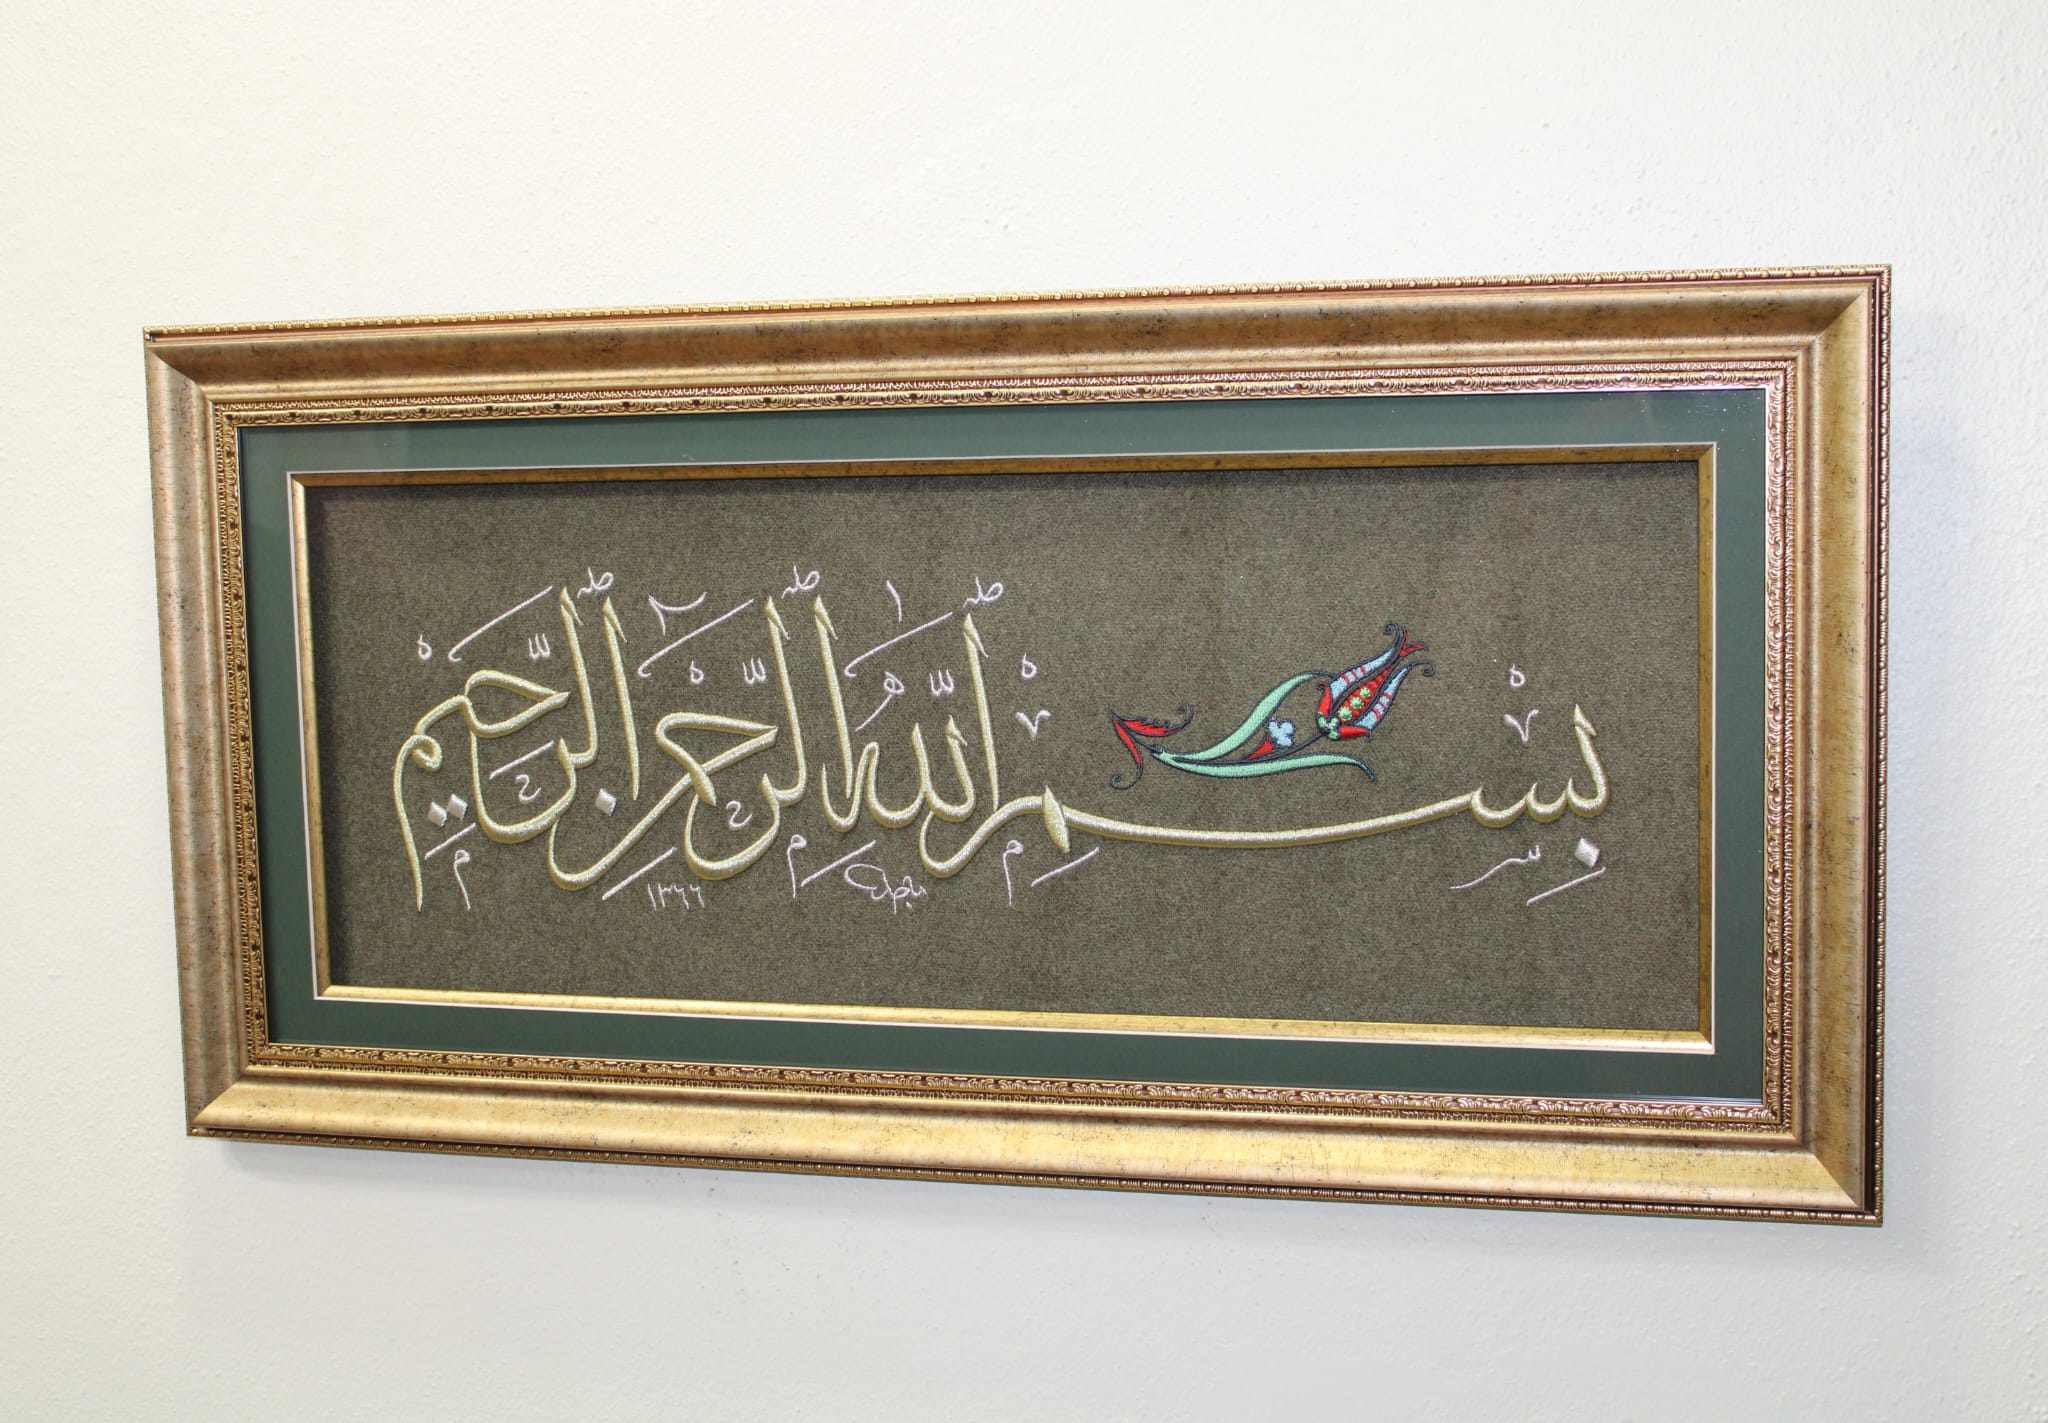 بسم الله الرحمن الرحيم
١٣٦٦